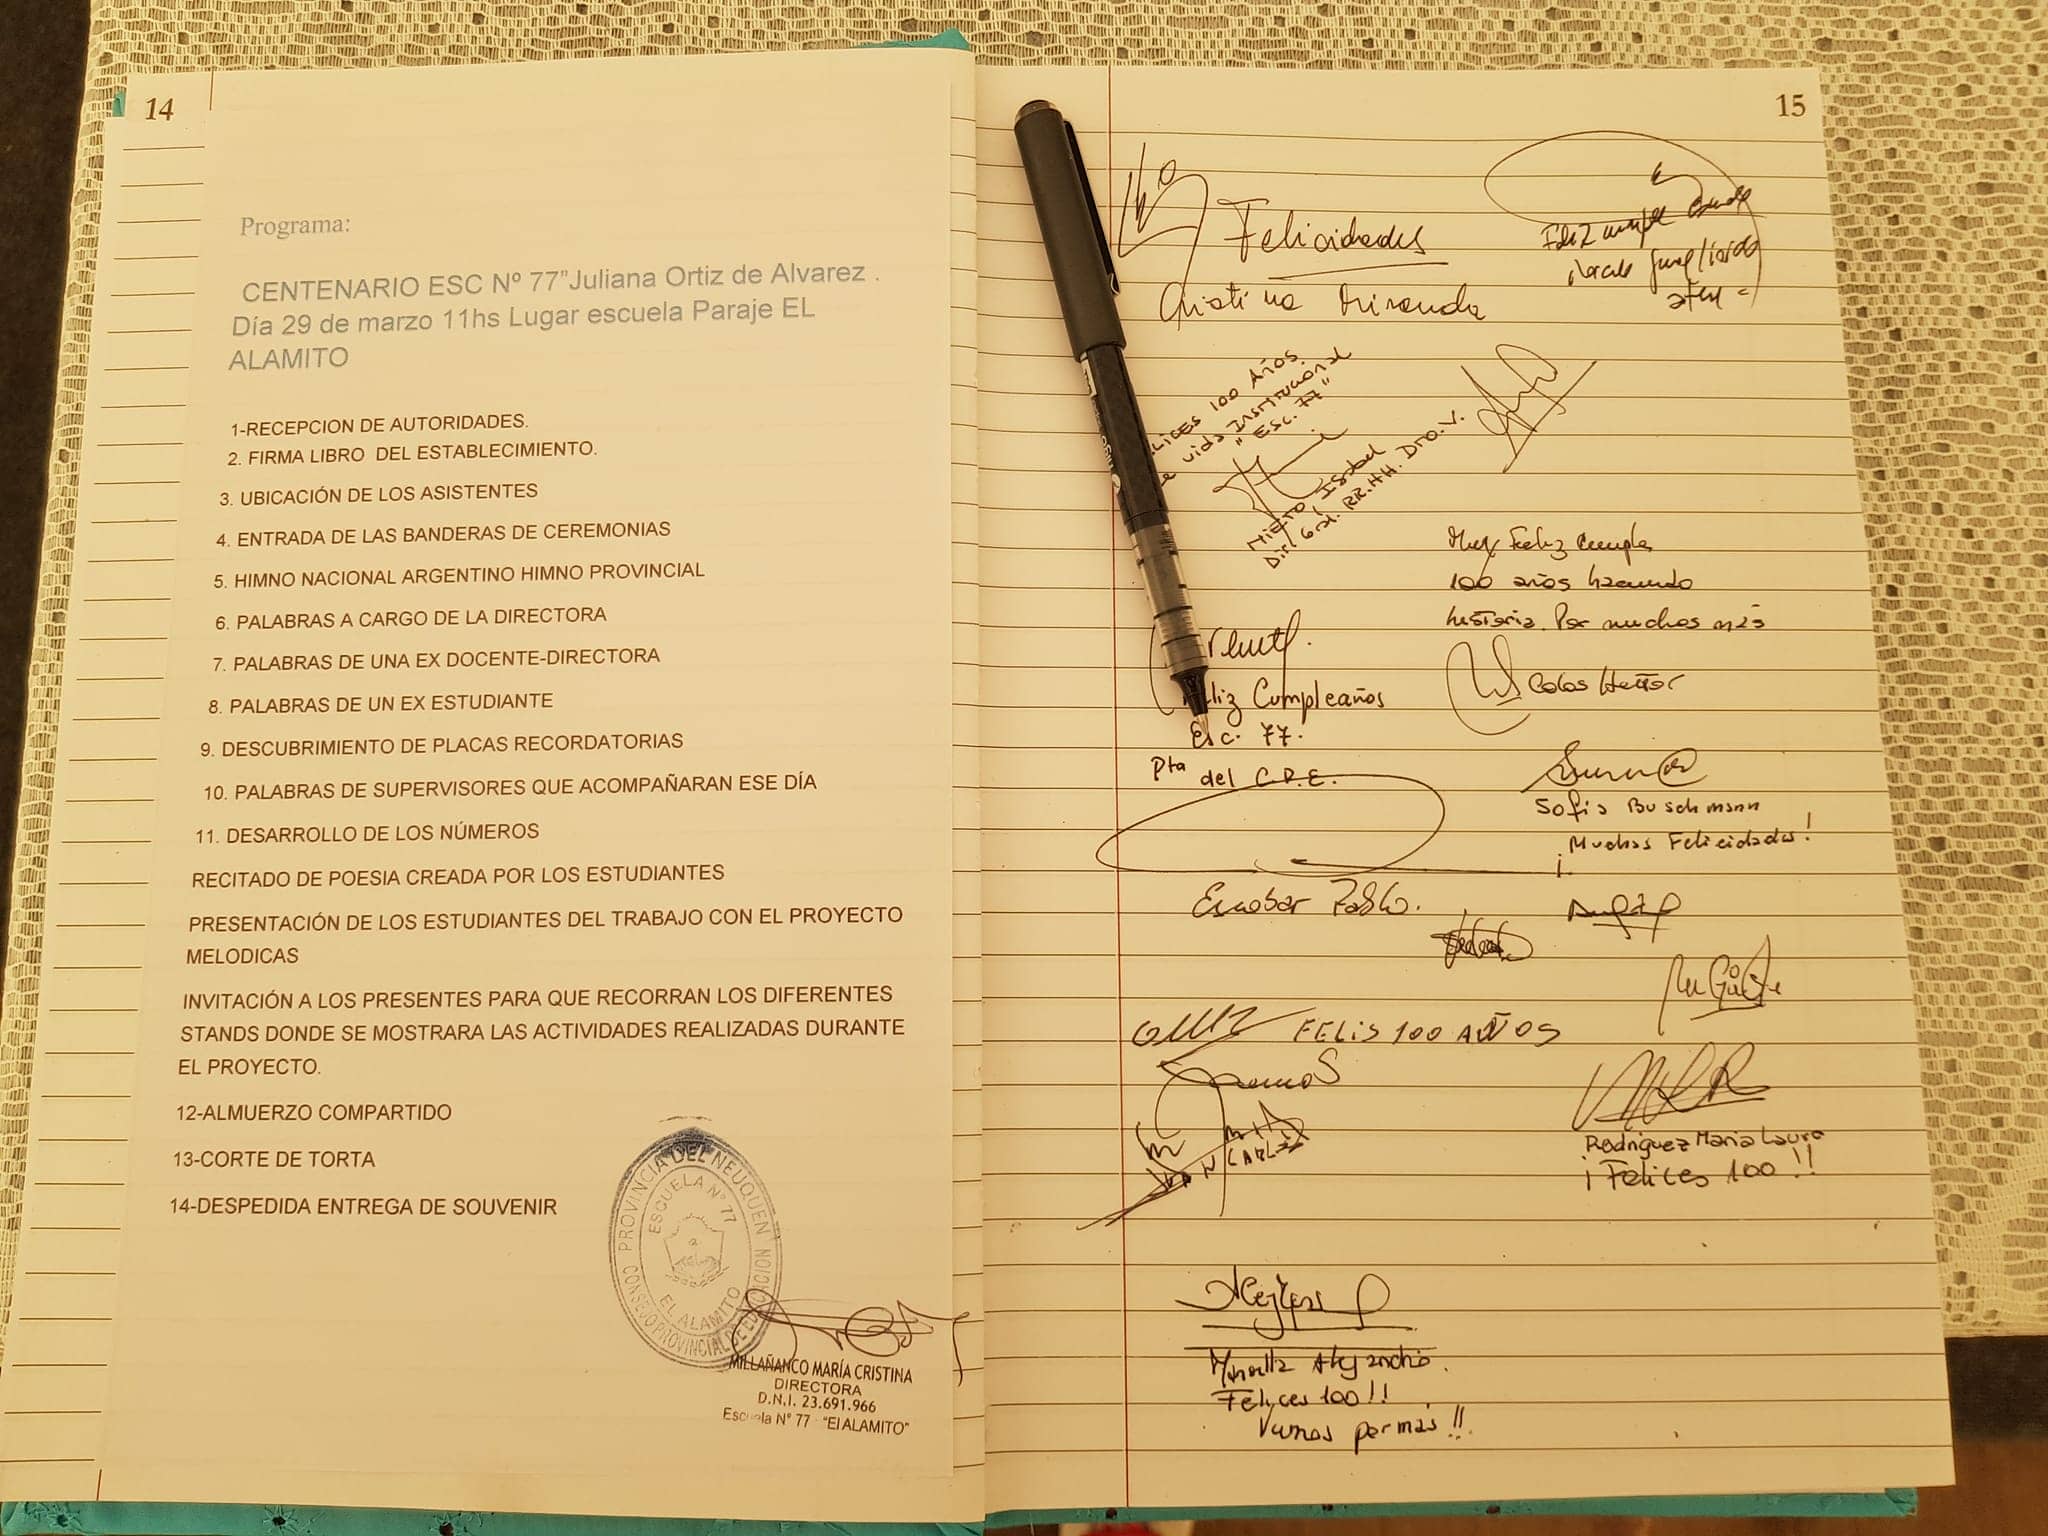 14
Programa:
CENTENARIO ESC Nº 77"Juliana Ortiz de Alvarez .
Día 29 de marzo 11hs Lugar escuela Paraje EL
ALAMITO
1-RECEPCION DE AUTORIDADES.
2. FIRMA LIBRO DEL ESTABLECIMIENTO.
3. UBICACIÓN DE LOS ASISTENTES
4. ENTRADA DE LAS BANDERAS DE CEREMONIAS
5. HIMNO NACIONAL ARGENTINO HIMNO PROVINCIAL
6. PALABRAS A CARGO DE LA DIRECTORA
7. PALABRAS DE UNA EX DOCENTE-DIRECTORA
8. PALABRAS DE UN EX ESTUDIANTE
9. DESCUBRIMIENTO DE PLACAS RECORDATORIAS
10. PALABRAS DE SUPERVISORES QUE ACOMPAÑARAN ESE DÍA
11. DESARROLLO DE LOS NÚMEROS
RECITADO DE POESIA CREADA POR LOS ESTUDIANTES
PRESENTACIÓN DE LOS ESTUDIANTES DEL TRABAJO CON EL PROYECTO
MELODICAS
INVITACIÓN A LOS PRESENTES PARA QUE RECORRAN LOS DIFERENTES
STANDS DONDE SE MOSTRARA LAS ACTIVIDADES REALIZADAS DURANTE
EL PROYECTO.
12-ALMUERZO COMPARTIDO
13-CORTE DE TORTA
14-DESPEDIDA ENTREGA DE SOUVENIR
PROVINCIA DEL NEUQUEN
CONSEJO PROVINCIAL DE EDUCACION
ESCUELA Nº 77
EL ALAMITO
MILLAÑANCO MARÍA CRISTINA
DIRECTORA
D.N.I. 23.691.966
Escuela N° 77 - "El ALAMITO"
15
Felicidades
Cristina Miranda
Feliz
100 Años.
vida Institucional
"Esc. 77"
Isabel
Dir. Gral. RR.HH. Dto. V.
Muy Feliz Cumple
100 años haciendo
historia. Por muchos más
Hector
Cumpleaños
Esc. 77.
Pta del C.P.E.
Sofia Buschmann
¡Muchas Felicidades!
Escobar Pablo.
FELIS 100 AÑOS
Ramos
Rodriguez Maria Laura
¡Felices 100!!
Alejandro.
Felices 100!!
Vamos por más!!